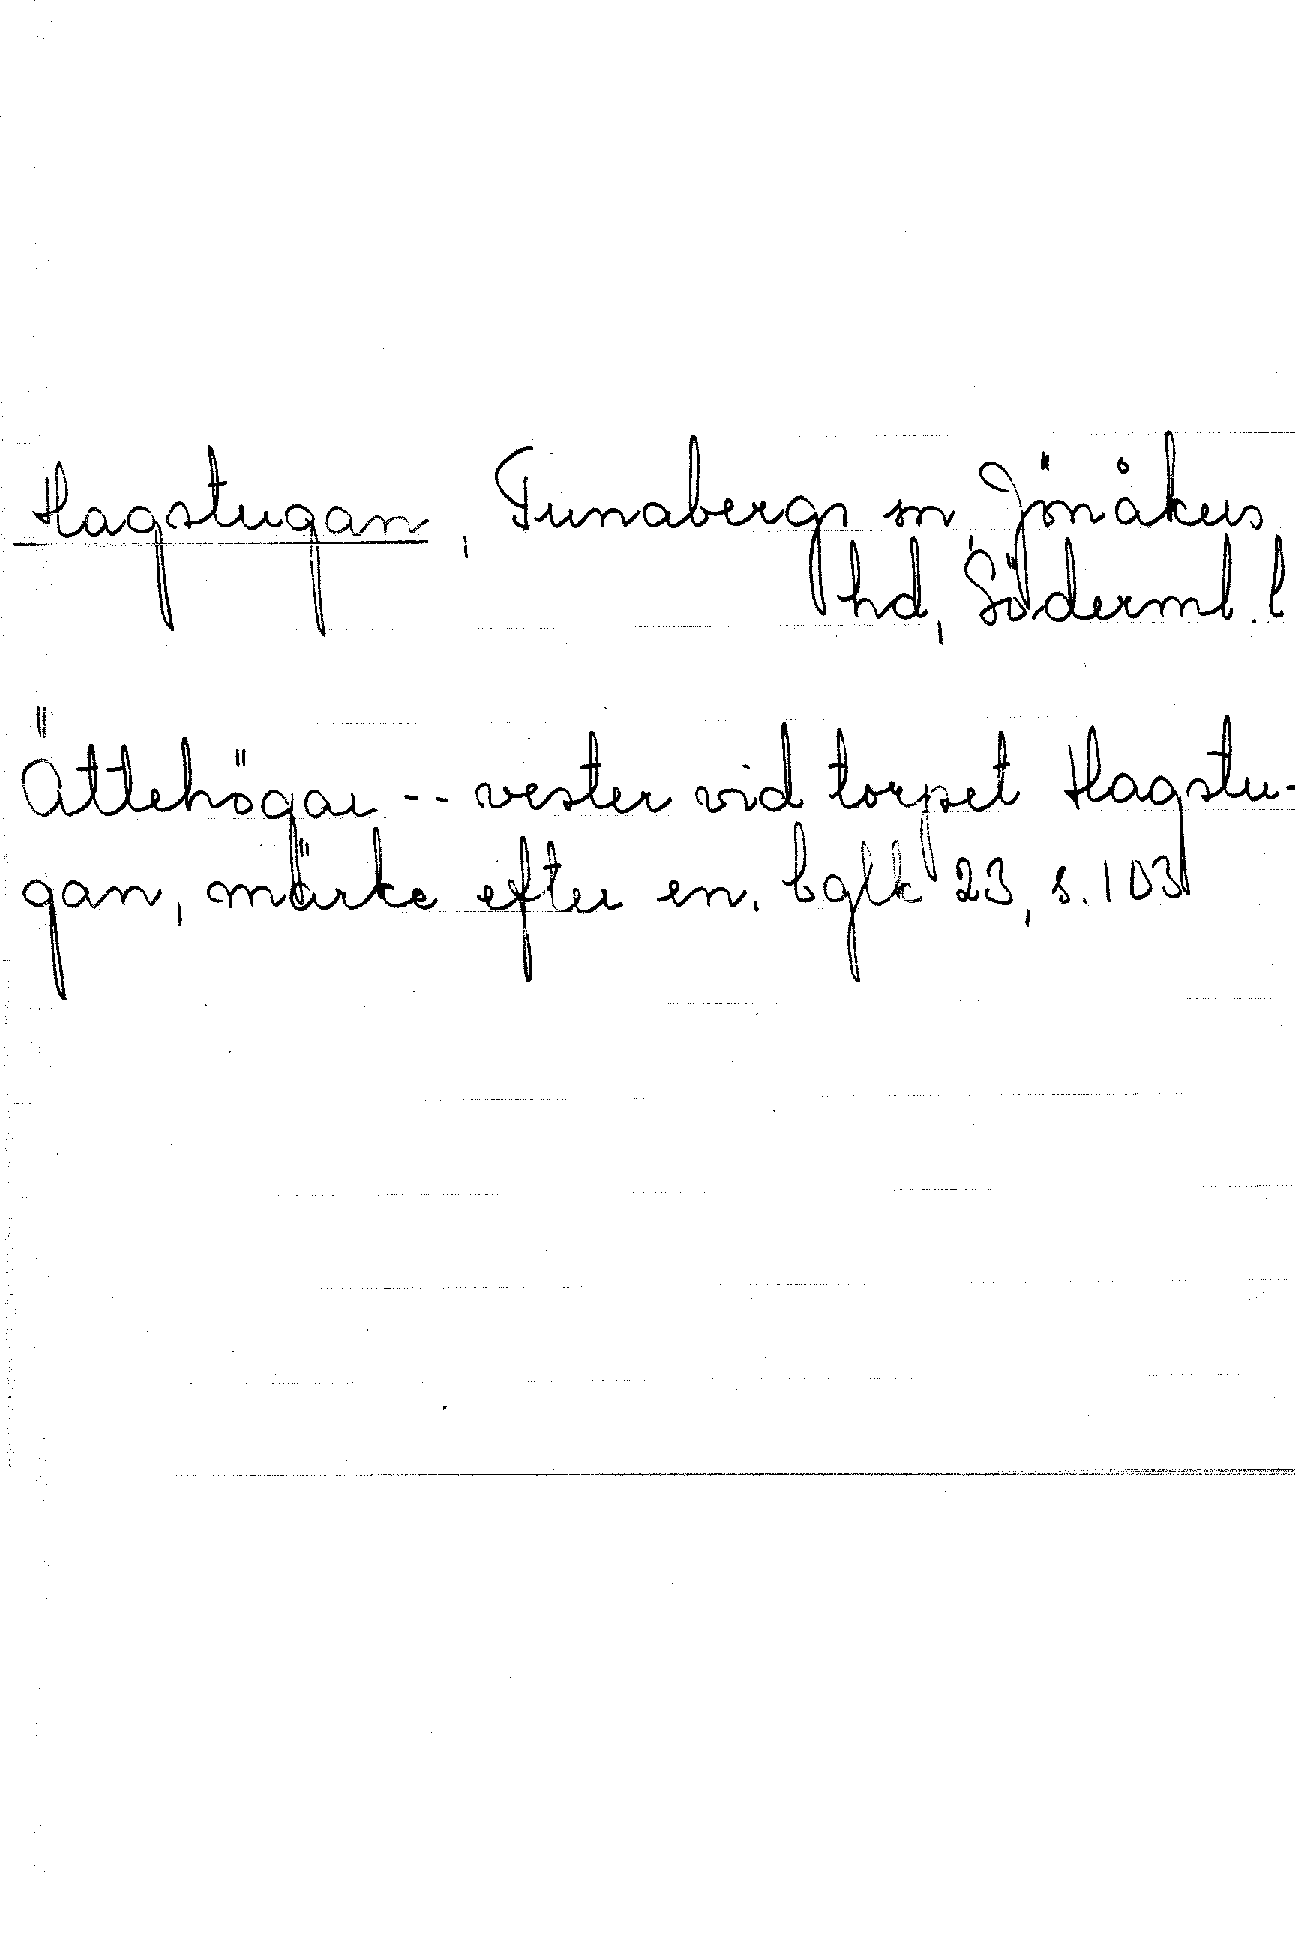 Hagstugan, Tunabergs sn, Jönåkers
hd, Söderml. l
Ättehögar -- vester vid torpet Hagstu-
gan, märke efter en. bglk 23, s. 103